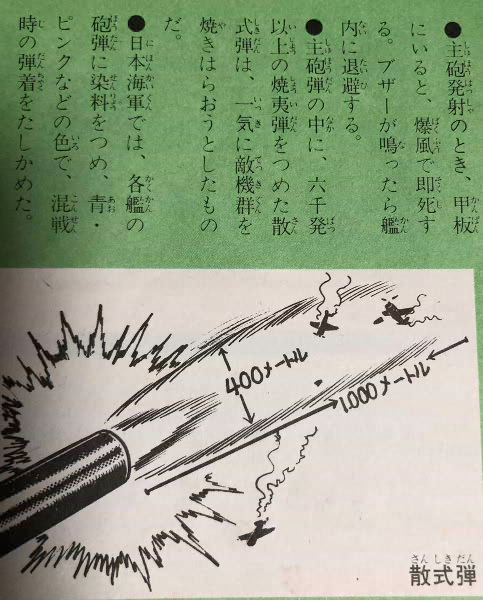 ●主砲発射のとき、甲板
にいると、爆風で即死す
る。ブザーが鳴ったら艦
内に退避する。
●主砲弾の中に、六千発
以上の焼夷弾をつめた散
式弾は、一気に敵機群を
焼きはらおうとしたもの
だ。
●日本海軍では、各艦の
砲弾に染料をつめ、青・
ピンクなどの色で、混戦
時の弾着をたしかめた。
400メートル
1,000メートル
散式弾